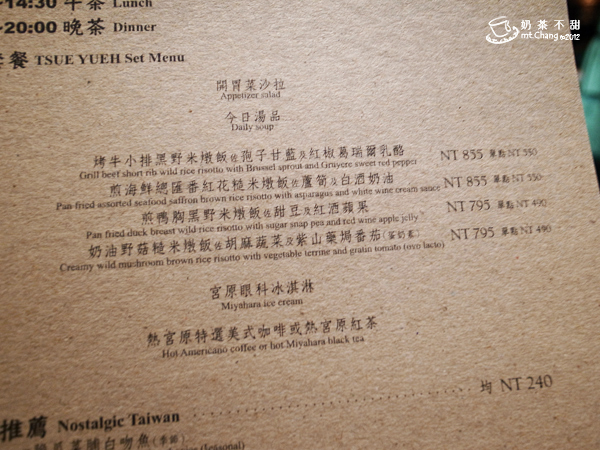 奶茶不甜
mt.Chang 2012
-14:30 午茶 Lunch
-20:00 晚茶 Dinner
套餐 TSUE YUEH Set Menu
開胃菜沙拉
Appetizer salad
今日湯品
Daily soup
烤牛小排黑野米燉飯佐孢子甘藍及紅椒葛瑞爾乳酪 NT 855 單點 NT 550
Grill beef short rib wild rice risotto with Brussel sprout and Gruyere sweet red pepper
煎海鮮總匯番紅花糙米燉飯佐蘆筍及白酒奶油 NT 855 單點 NT 550
Pan fried assorted seafood saffron brown rice risotto with asparagus and white wine cream sauce
煎鴨胸黑野米燉飯佐甜豆及紅酒蘋果 NT 795 單點 NT 490
Pan fried duck breast wild rice risotto with sugar snap pea and red wine apple jelly
奶油野菇糙米燉飯佐胡麻蔬菜及紫山藥焗番茄(蛋奶素) NT 795 單點 NT 490
Creamy wild mushroom brown rice risotto with vegetable terrine and gratin tomato (ovo lacto)
宮原眼科冰淇淋
Miyahara ice cream
熱宮原特選美式咖啡或熱宮原紅茶
Hot Americano coffee or hot Miyahara black tea
均 NT 240
推薦 Nostalgic Taiwan
白吻魚(季節)
(Seasonal)